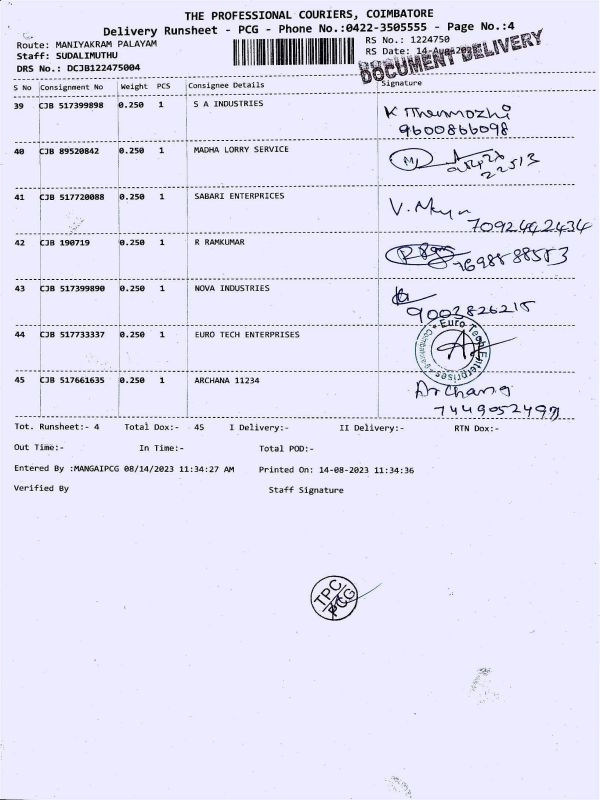 THE PROFESSIONAL COURIERS, COIMBATORE
Delivery Runsheet - PCG - Phone No.:0422-3505555 - Page No.:4
Route: MANIYAKRAM PALAYAM
RS No.: 1224750
Staff: SUDALIMUTHU
RS Date: 14-Aug-2023
DRS No.: DCJB122475004
DOCUMENT DELIVERY
S No Consignment No Weight PCS Consignee Details Signature
39 CJB 517399898 0.250 1 S A INDUSTRIES
K Thenmozhi
9600866098
40 CJB 89520842 0.250 1 MADHA LORRY SERVICE
22513
41 CJB 517720088 0.250 1 SABARI ENTERPRICES
7092492434
42 CJB 190719 0.250 1 R RAMKUMAR
43 CJB 517399890 0.250 1 NOVA INDUSTRIES
9003826215
44 CJB 517733337 0.250 1 EURO TECH ENTERPRISES
Euro Tech Enterprises
45 CJB 517661635 0.250 1 ARCHANA 11234
Archana
Tot. Runsheet:- 4 Total Dox:- 45 I Delivery:- II Delivery:- RTN Dox:-
Out Time:- In Time:- Total POD:-
Entered By :MANGAIPCG 08/14/2023 11:34:27 AM Printed On: 14-08-2023 11:34:36
Verified By Staff Signature
TPC
PCG